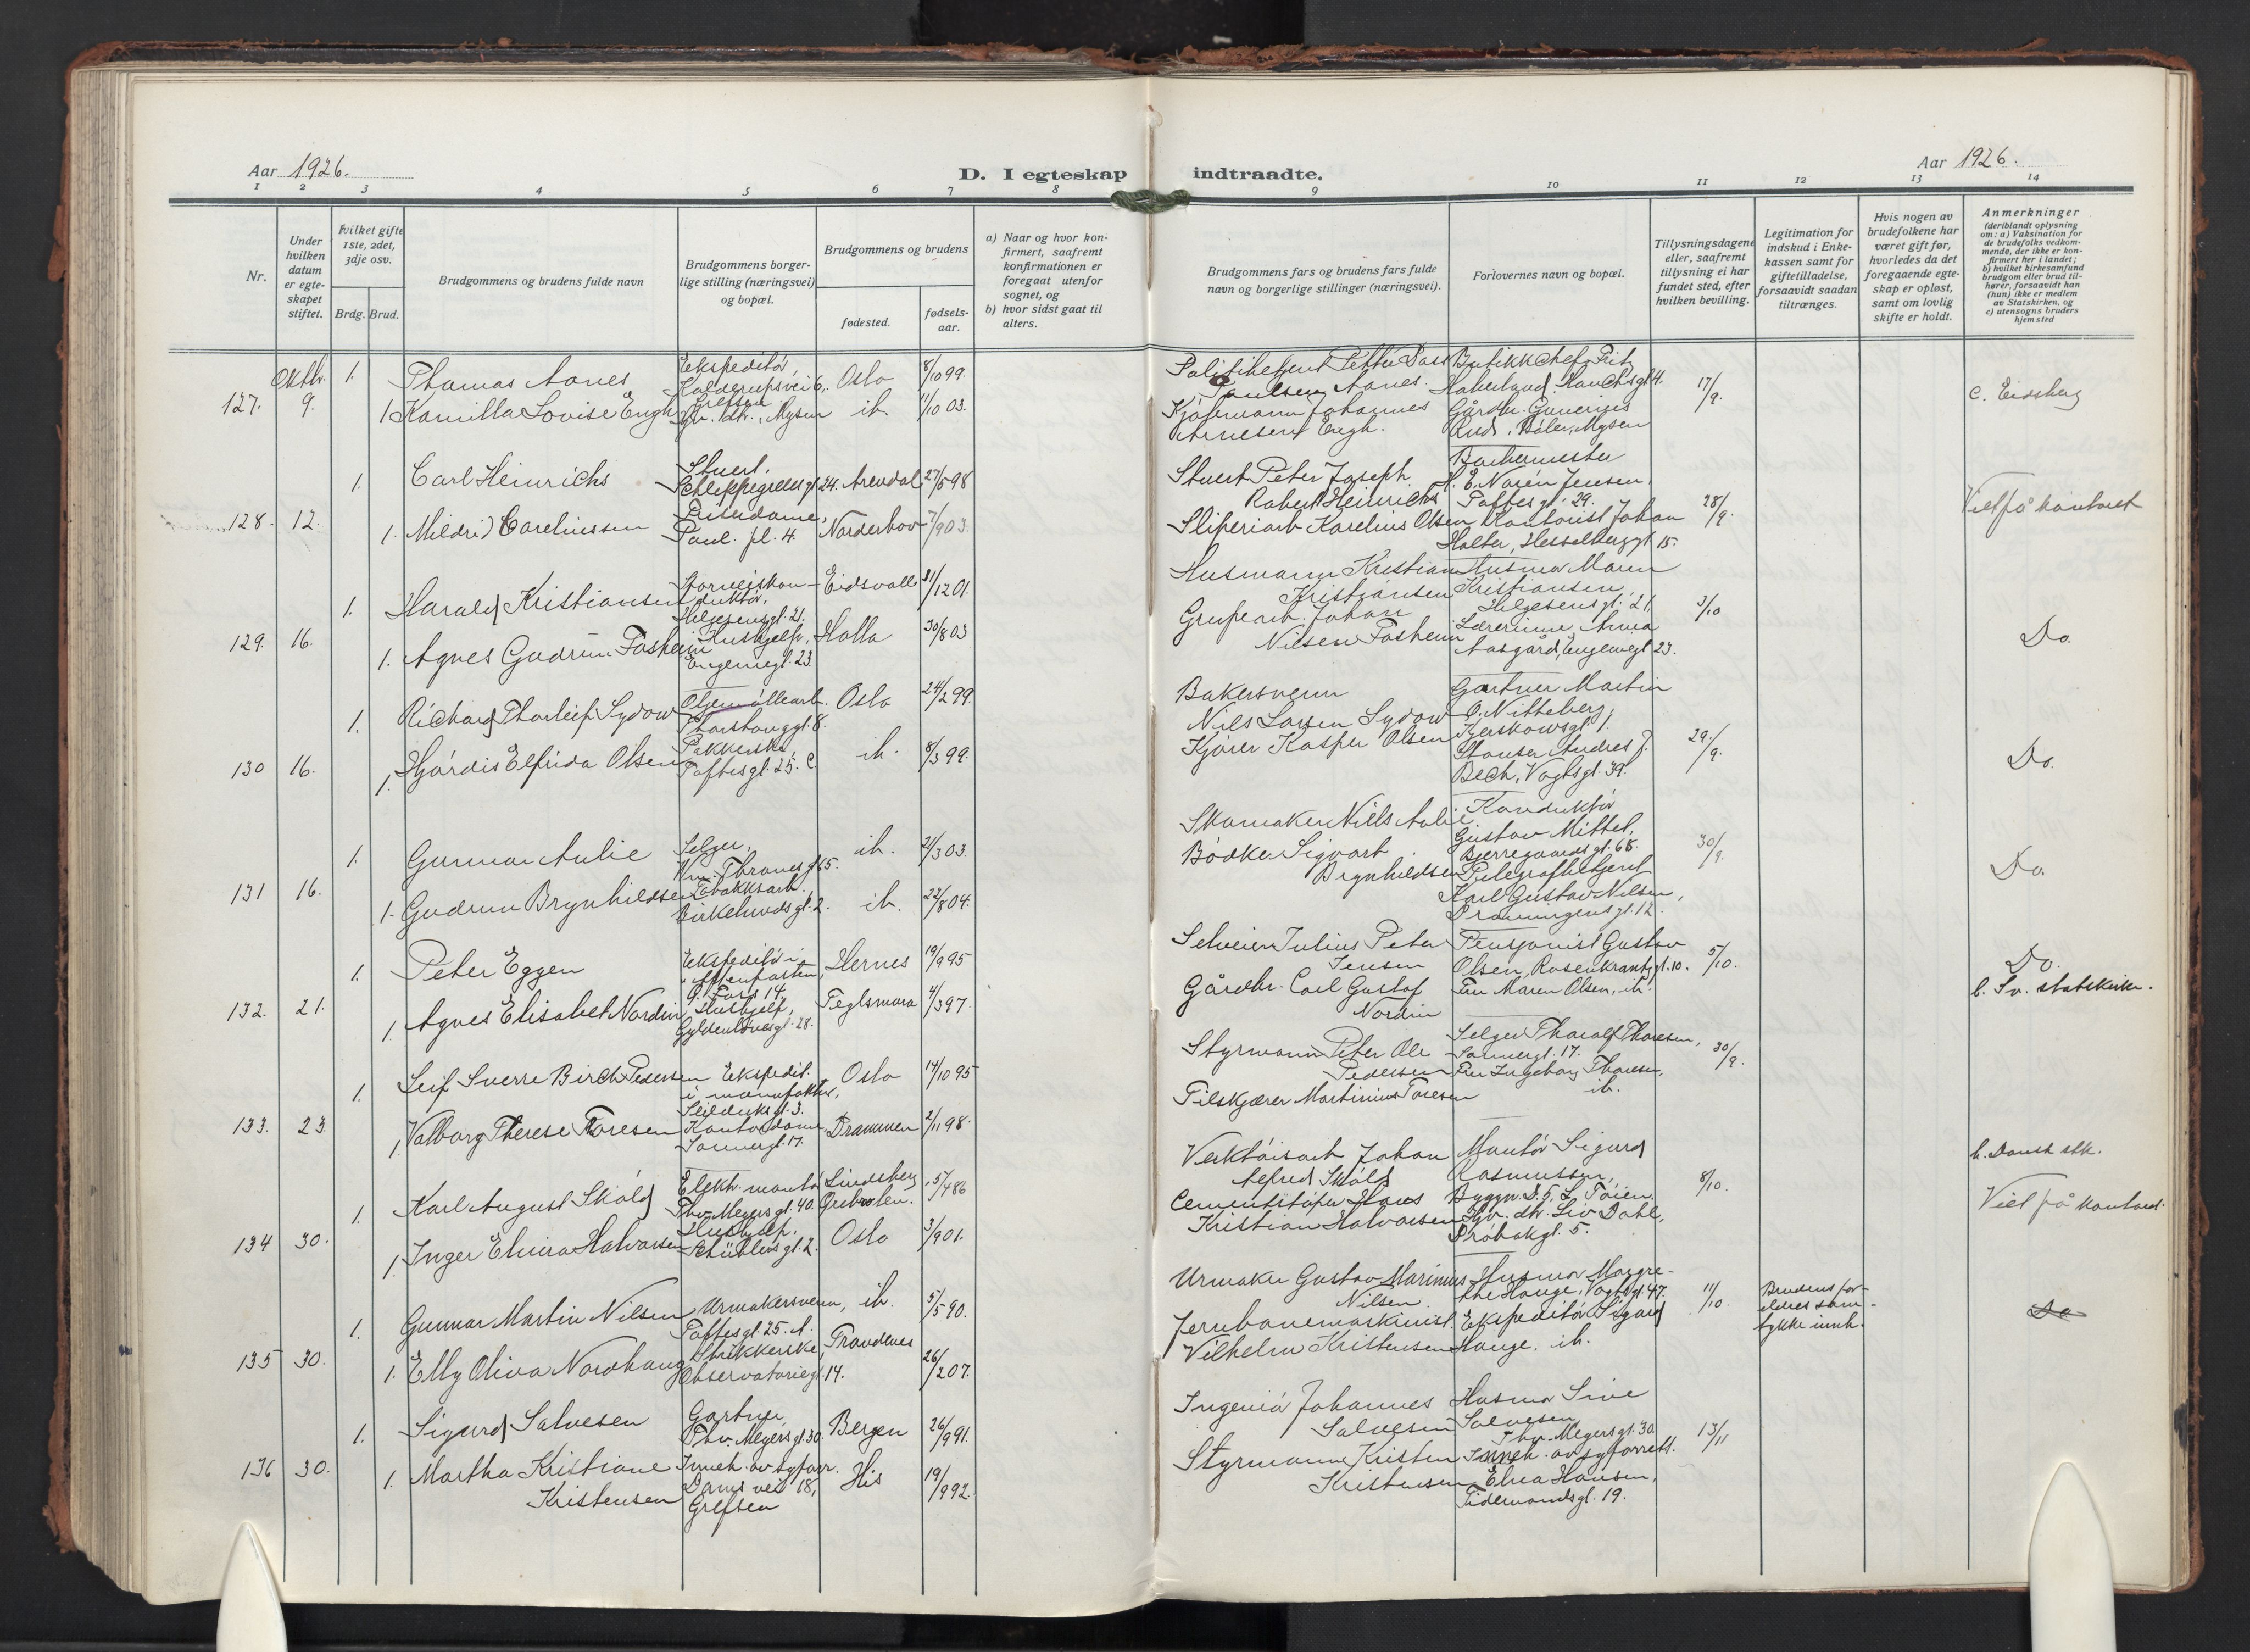 Aar 1926.
D. I egteskap indtraadte.
Aar 1926.
1 2 3 4 5 6 7 8 9 10 11 12 13 14
Nr.
Under hvilken datum er egteskapet stiftet.
Hvilket gifte 1ste, 2det, 3dje osv.
Brdg. Brud.
Brudgommens og brudens fulde navn
Brudgommens borgerlige stilling (næringsvei) og bopæl.
Brudgommens og brudens
fødested.
fødselsaar.
a) Naar og hvor konfirmert, saafremt konfirmationen er foregaat utenfor sognet, og
b) hvor sidst gaat til alters.
Brudgommens fars og brudens fars fulde navn og borgerlige stillinger (næringsvei).
Forlovernes navn og bopæl.
Tillysningsdagene eller, saafremt tillysning ei har fundet sted, efter hvilken bevilling.
Legitimation for indskud i Enkekassen samt for giftetilladelse, forsaavidt saadan tiltrænges.
Hvis nogen av brudefolkene har været gift før, hvorledes da det foregaaende egteskap er opløst, samt om lovlig skifte er holdt.
Anmerkninger
(deriblandt oplysning om: a) Vaksination for de brudefolks vedkommende, der ikke er konfirmert her i landet; b) hvilket kirkesamfund brudgom eller brud tilhører, forsaavidt han (hun) ikke er medlem av Statskirken, og c) utensogns bruders hjemsted
Oktbr.
127. 9.
1. Thomas Aanes
Ekspeditør, Kalderupsvei 6, Grefsen
Oslo 8/10 99.
1. Kamilla Lovise Engh
Gbr. dtr., Mysen
ib. 11/10 03.
Politibetjent Petter Dass Paulsen Aanes.
Kjøpmann Johannes Arnesen Engh.
Butikkchef Fritz Haberland, Hauchsgt 4.
Gårdbr. Gunerius Rud, Båler, Mysen
17/9.
c. Eidsberg
128. 12.
1. Carl Heinrichs
Stuert, Schleppegrellsgt 24.
Arendal 27/5 98
1. Mildrid Careliussen
Paul. pl. 4.
Norderhov 7/9 03.
Stuert Peter Joseph Robert Heinrichs
Sliperiarb Karelius Olsen
Barbermester H. E. Norén Jensen, Toftesgt. 29.
Kontorist Johan Holter, Hesselberggt 15.
28/9.
Viet på kontoret
129. 16.
1. Harald Kristiansen
Sporveiskonduktør, Helgesensgt. 21.
Eidsvoll 31/12 01.
1. Agnes Gudrun Fosheim
Hushjelp, Eugeniegt. 23.
Holla 30/8 03
Husmann Kristian Kristiansen
Grubearb. Johan Nilsen Fosheim
Husmor Maren Kristiansen, Helgesensgt. 21.
Lærerinne Anna Aasgård, Eugeniegt 23.
3/10
Do.
130 16.
1. Richard Thorleif Sydow
Oljemøllearb. Thorshauggt. 8.
Oslo 24/2 99.
1. Hjørdis Elfrida Olsen
Pakkerske, Toftesgt. 25. c.
ib. 8/3 99.
Bakersvenn Nils Larsen Sydow
Kjører Kasper Olsen
Gartner Martin O. Nitteberg, Kierskowsgt. 1.
Stanser Andres J. Bech, Vogtsgt. 39.
29./9.
Do.
131 16.
1. Gunnar Aulie
Selger, Thranesgt 65.
ib. 2/3 03.
1. Gudrun Brynhildsen
Tobakksarb. Birkelundsgt. 2.
ib. 22/8 04.
Skomaker Nils Aulie
Bødker Sigvart Brynhildsen
Konduktør Gustav Mittet, Bjerregaardsgt. 68.
Telegrafbetjent Karl Gustav Nilsen, Dronningensgt. 12.
30/9.
Do.
132. 21.
1. Peter Eggen
Ekspeditør i Aftenposten, G. Torg 14.
Hernes 19/9 95
1. Agnes Elisabet Nordin
Hushjelp, Gyldenløvesgt. 28.
Teglsmora 4/3 97.
Selveier Julius Peter Jensen
Gårdbr. Carl Gustaf Nordin
Pensjonist Gustav Olsen, Rosenkrantzgt. 10.
Fru Maren Olsen, ib.
5/10.
Do.
b. Sv. statskirke.
133. 23.
1. Leif Sverre Birch Pedersen
Ekspedit. i manufaktur, Seilduksgt. 3.
Oslo 14/10 95
1. Valborg Therese Thoresen
Kontordame Sannergt. 17.
Drammen 2/11 98.
Styrmann Peter Ole Pedersen
Filskjærer Martinius Toresen
Selger Thoralf Thoresen, Sannergt. 17.
Fru Ingeborg Thoresen, ib.
30/9.
134 30.
1. Karl August Skøld
Elekt. montør Thv. Meyersgt. 40.
Lindesberg, Örebrolen. 15/4 86
1. Inger Elvira Halvorsen
Hushjelp, Schüblersgt. 2.
Oslo 3/9 01.
Verktøisarb Johan Alfred Skøld
Cementstøper Hans Kristian Halvorsen
Montør Sigurd Rasmussen, Byggn. D. 5, L. Tøien.
Gbr. dtr. Liv Dahl, Drøbakgt. 5.
8/10.
b. Dansk stk.
Viet på kontoret.
135 30.
1. Gunnar Martin Nilsen
Urmakersvenn, Toftesgt 25. A.
ib. 5/5 90.
1. Elly Oliva Nordhaug
Strikkerske, Observatoriegt. 14.
Trondenes 26/2 07.
Urmaker Gustav Marinius Nilsen.
Jernbanemaskinist Vilhelm Kristensen
Husmor Margrethe Hauge, Vogtsgt. 47.
Ekspeditør Sigurd Hauge. ib.
11/10.
Brudens foreldres samtykke innh.
Do
136 30.
1. Sigurd Salvesen
Gartner, Thv. Meyersgt 30.
Bergen 26/9 91.
1. Martha Kristiane Kristensen
Inneh. av syforr. vei 18, Grefsen
His 19/9 92.
Ingeniør Johannes Salvesen
Styrmann Kristen Kristensen
Husmor Sine Salvesen Thv. Meyersgt 30.
Inneh. av syforrett. Elna Hansen, Tidemandsgt. 19.
13/11